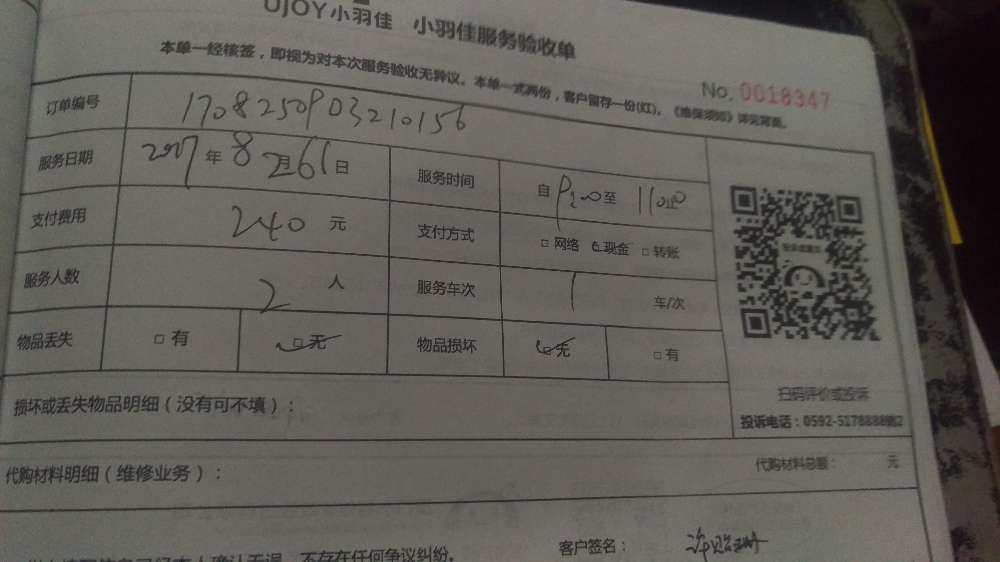 UJOY小羽佳 小羽佳服务验收单
本单一经核签，即视为对本次服务验收无异议。本单一式两份，客户留存一份(红)。《维保须知》详见背面。
No. 0018347
订单编号 1708250903210156
服务日期 2017年8月26日 服务时间 自 至
支付费用 240元 支付方式 □网络 □现金 □转账
服务人数 2人 服务车次 1 车/次
物品丢失 □有 □无 物品损坏 □无 □有
扫码评价或投诉
损坏或丢失物品明细（没有可不填）：
投诉电话：0592-5178888转2
代购材料明细（维修业务）： 代购材料总额： 元
已经本人确认无误，不存在任何争议纠纷。
客户签名：